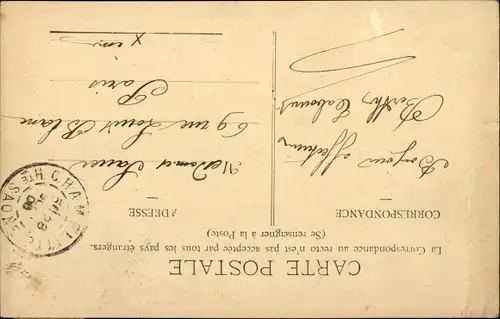 CARTE POSTALE
La Correspondance au recto n'est pas acceptée par tous les pays étrangers.
(Se renseigner à la Poste)
CORRESPONDANCE
Bonjour affectueux
Berthe
ADRESSE
69 rue Louis Blanc
Paris
X eme
CHAMPLITTE
HTE SAONE